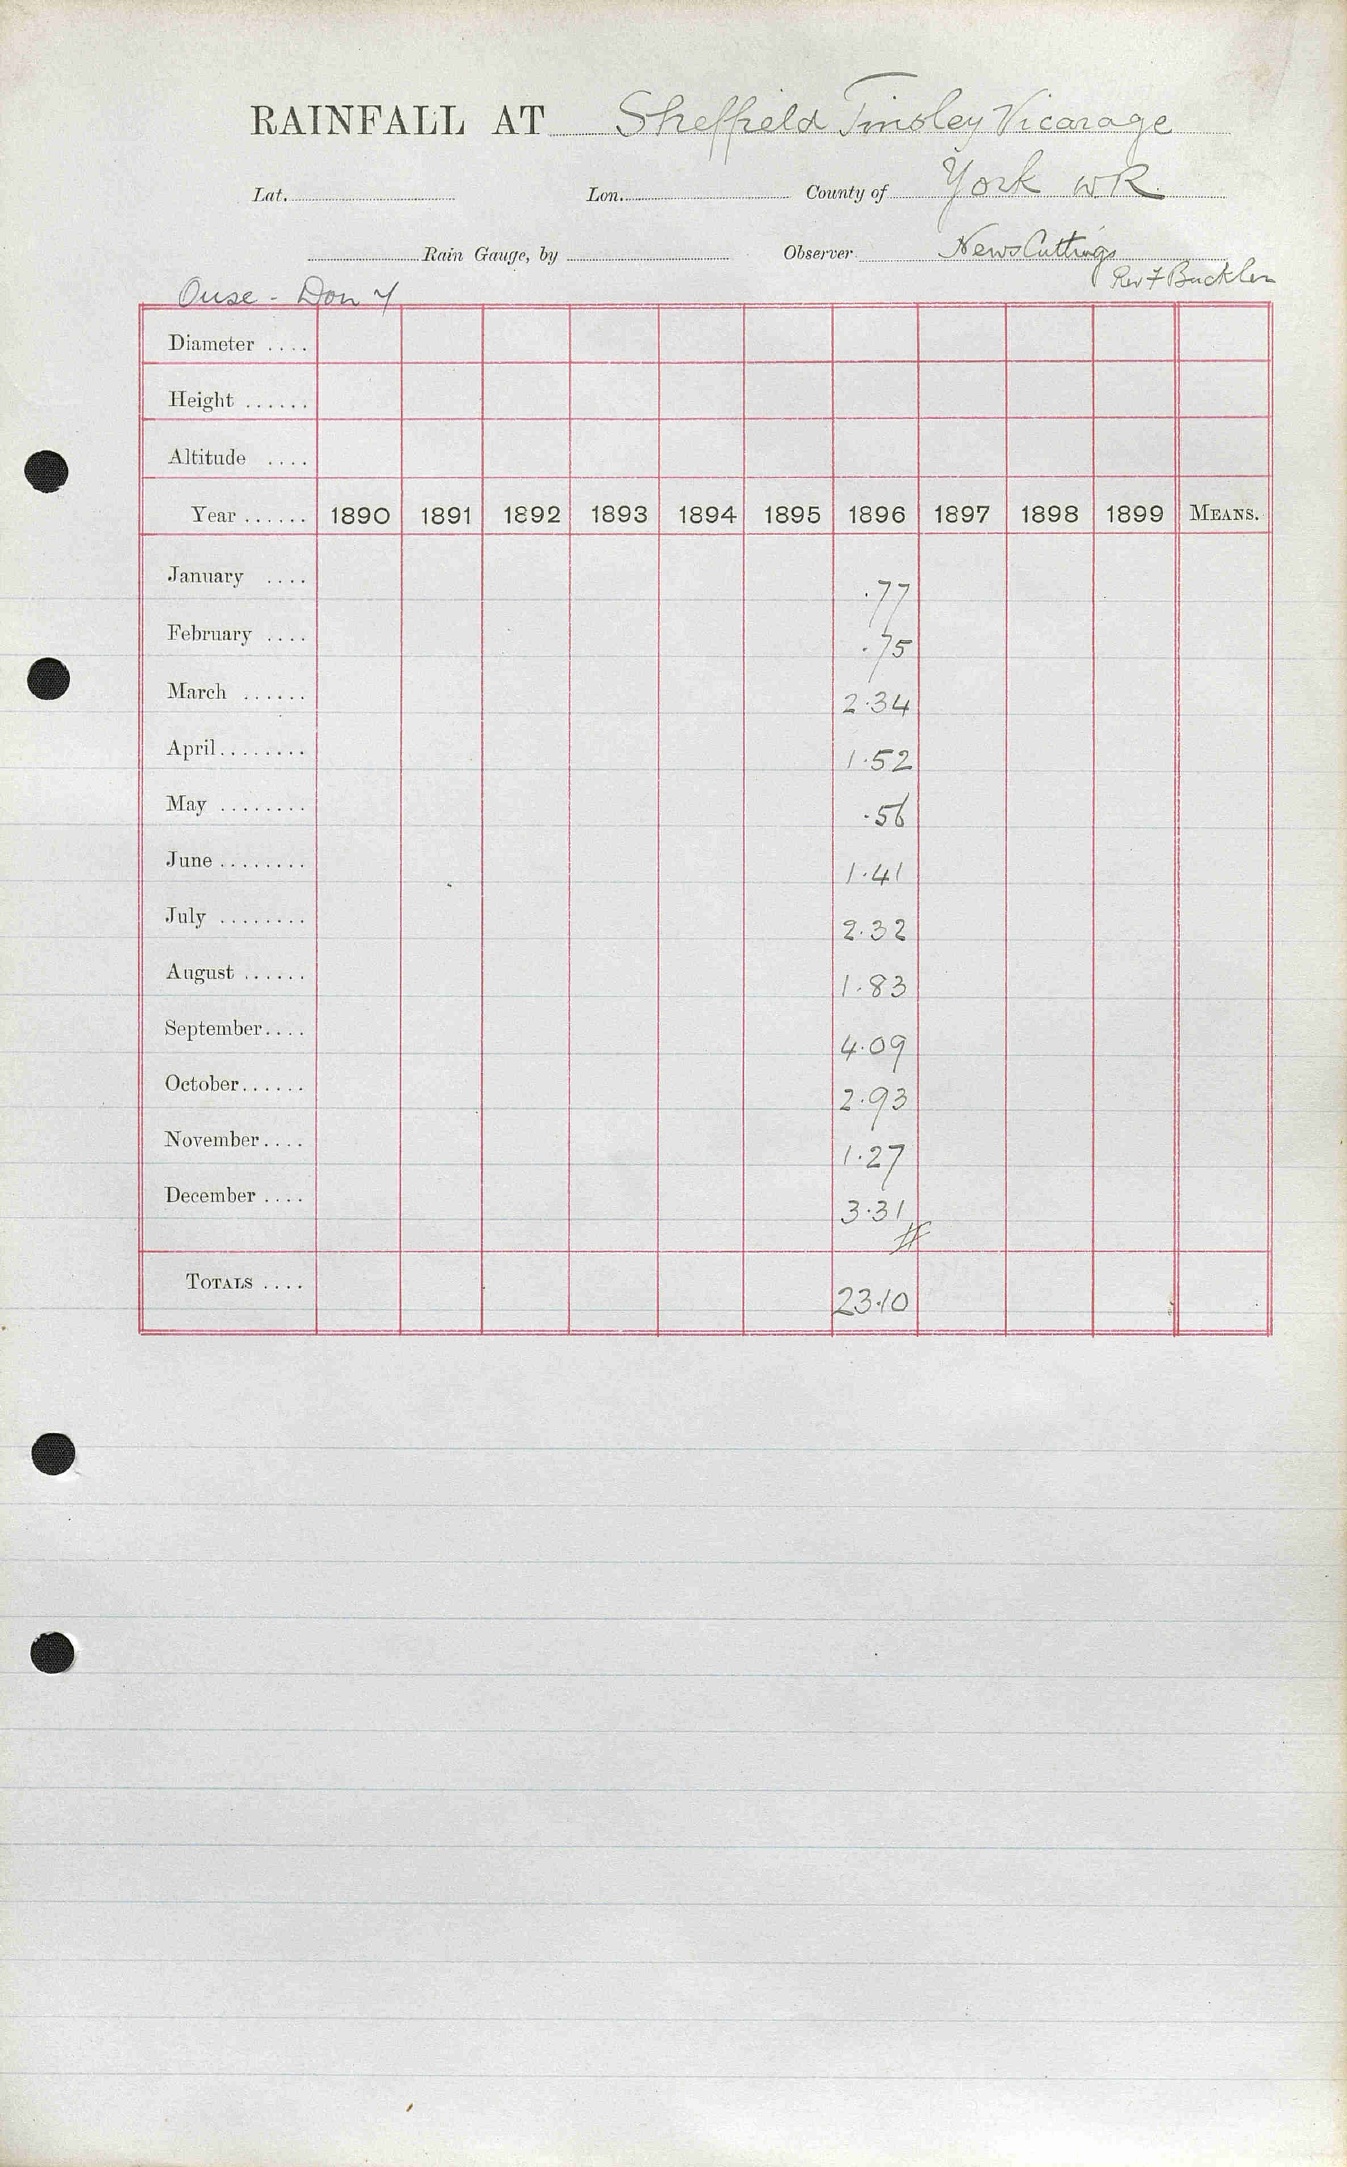 RAINFALL AT Sheffield Tinsley Vicarage
Lat. Lon. County of York WR
Rain Gauge, by Observer. News Cuttings
Rev F Buckler
Ouse - Don
Diameter ....
Height ......
Altitude ....
Year ...... 1890 1891 1892 1893 1894 1895 1896 1897 1898 1899 MEANS.
January .... .77
February .... .75
March ...... 2.34
April........ 1.52
May ........ .56
June ........ 1.41
July ........ 2.32
August ...... 1.83
September.... 4.09
October...... 2.93
November.... 1.27
December .... 3.31
TOTALS .... 23.10